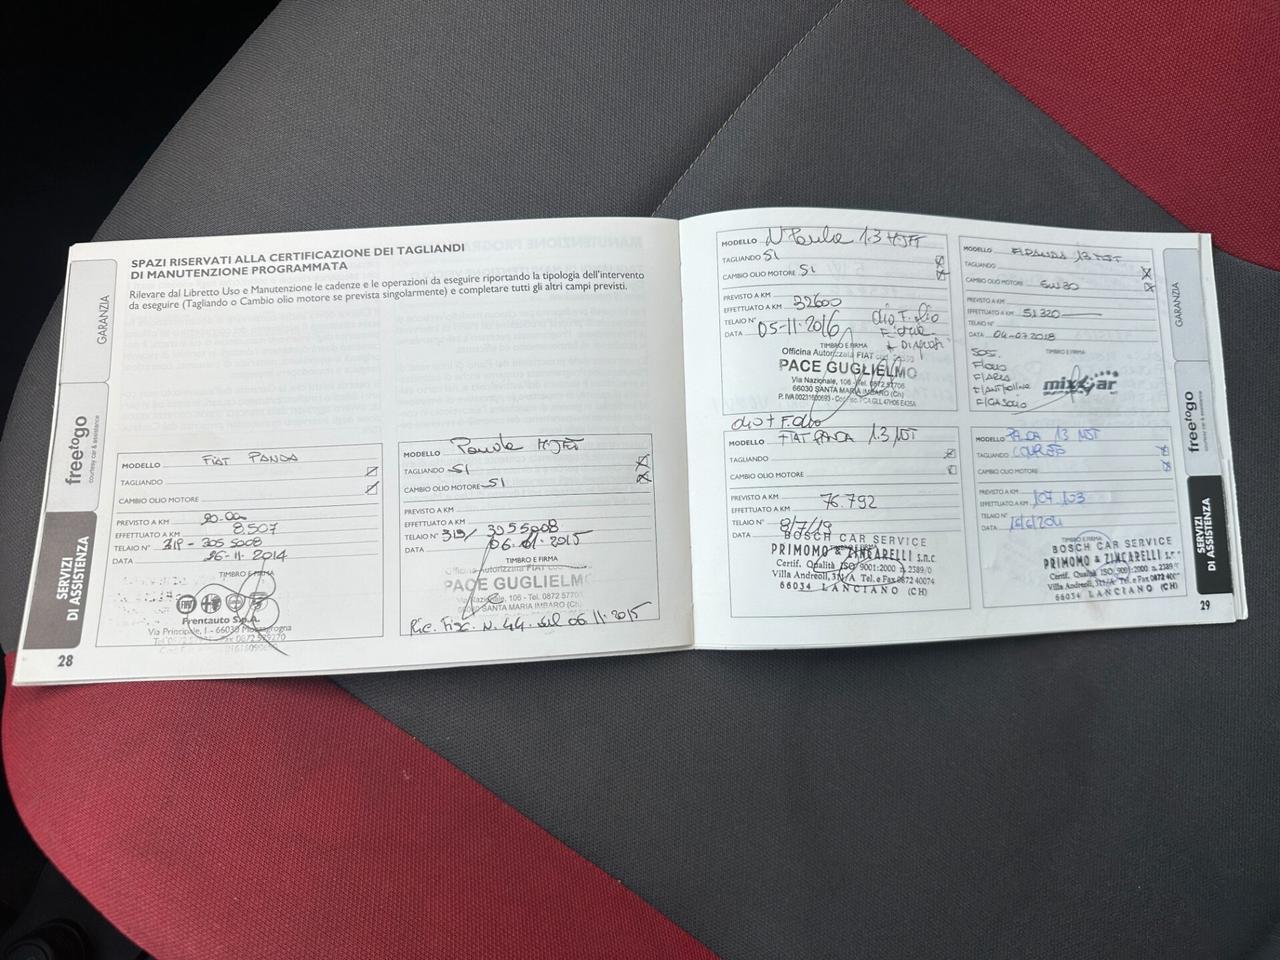 SPAZI RISERVATI ALLA CERTIFICAZIONE DEI TAGLIANDI
DI MANUTENZIONE PROGRAMMATA
Rilevare dal Libretto Uso e Manutenzione le cadenze e le operazioni da eseguire riportando la tipologia dell'intervento
da eseguire (Tagliando o Cambio olio motore se prevista singolarmente) e completare tutti gli altri campi previsti.
GARANZIA
freetogo
courtesy car & assistance
SERVIZI
DI ASSISTENZA
MODELLO FIAT PANDA
TAGLIANDO
CAMBIO OLIO MOTORE
PREVISTO A KM
EFFETTUATO A KM 8.507
TELAIO N° 319-3055008
DATA 26-11-2014
TIMBRO E FIRMA
Frentauto S.p.A.
28
MODELLO Panda MJET
TAGLIANDO SI
CAMBIO OLIO MOTORE SI
PREVISTO A KM
EFFETTUATO A KM
TELAIO N° 319/ 3055008
DATA
TIMBRO E FIRMA
PACE GUGLIELMO
Via Nazionale, 106 - Tel. 0872
SANTA MARIA IMBARO (Ch)
Ric. Fisc. N. 44 del 06.11.2015
MODELLO N Panda 1.3 MJET
TAGLIANDO SI
CAMBIO OLIO MOTORE SI
PREVISTO A KM
EFFETTUATO A KM 32600
TELAIO N°
DATA 05-11-2016
TIMBRO E FIRMA
Officina Autorizzata FIAT
PACE GUGLIELMO
Via Nazionale, 106 - Tel. 0872 57706
66030 SANTA MARIA IMBARO (Ch)
MODELLO F.PANDA 13 MJT
TAGLIANDO
CAMBIO OLIO MOTORE 5W30
PREVISTO A KM
EFFETTUATO A KM 51320
TELAIO N°
DATA 04-07-2018
TIMBRO E FIRMA
SOS.
F/OLIO
F/ARIA
F/ANTIPOLLINE
F/GASOLIO
mixcar
olio + F.olio
MODELLO FIAT PANDA 1.3 MJT
TAGLIANDO
CAMBIO OLIO MOTORE
PREVISTO A KM
EFFETTUATO A KM 76.792
TELAIO N°
DATA 8/7/19
BOSCH CAR SERVICE
PRIMOMO & ZINCARELLI s.n.c.
Certif. Qualità ISO 9001:2000 n. 2389/0
Villa Andreoli, 311/A Tel. e Fax 0872 40074
66034 LANCIANO (CH)
MODELLO PANDA 13 MJT
TAGLIANDO
CAMBIO OLIO MOTORE
PREVISTO A KM
EFFETTUATO A KM 107.103
TELAIO N°
DATA
TIMBRO E FIRMA
BOSCH CAR SERVICE
PRIMOMO & ZINCARELLI s.n.c.
Certif. Qualità ISO 9001:2000 n. 2389/0
Villa Andreoli, 311/A Tel. e Fax 0872 400
66034 LANCIANO (CH)
GARANZIA
freetogo
courtesy car & assistance
SERVIZI
DI ASSISTENZA
29